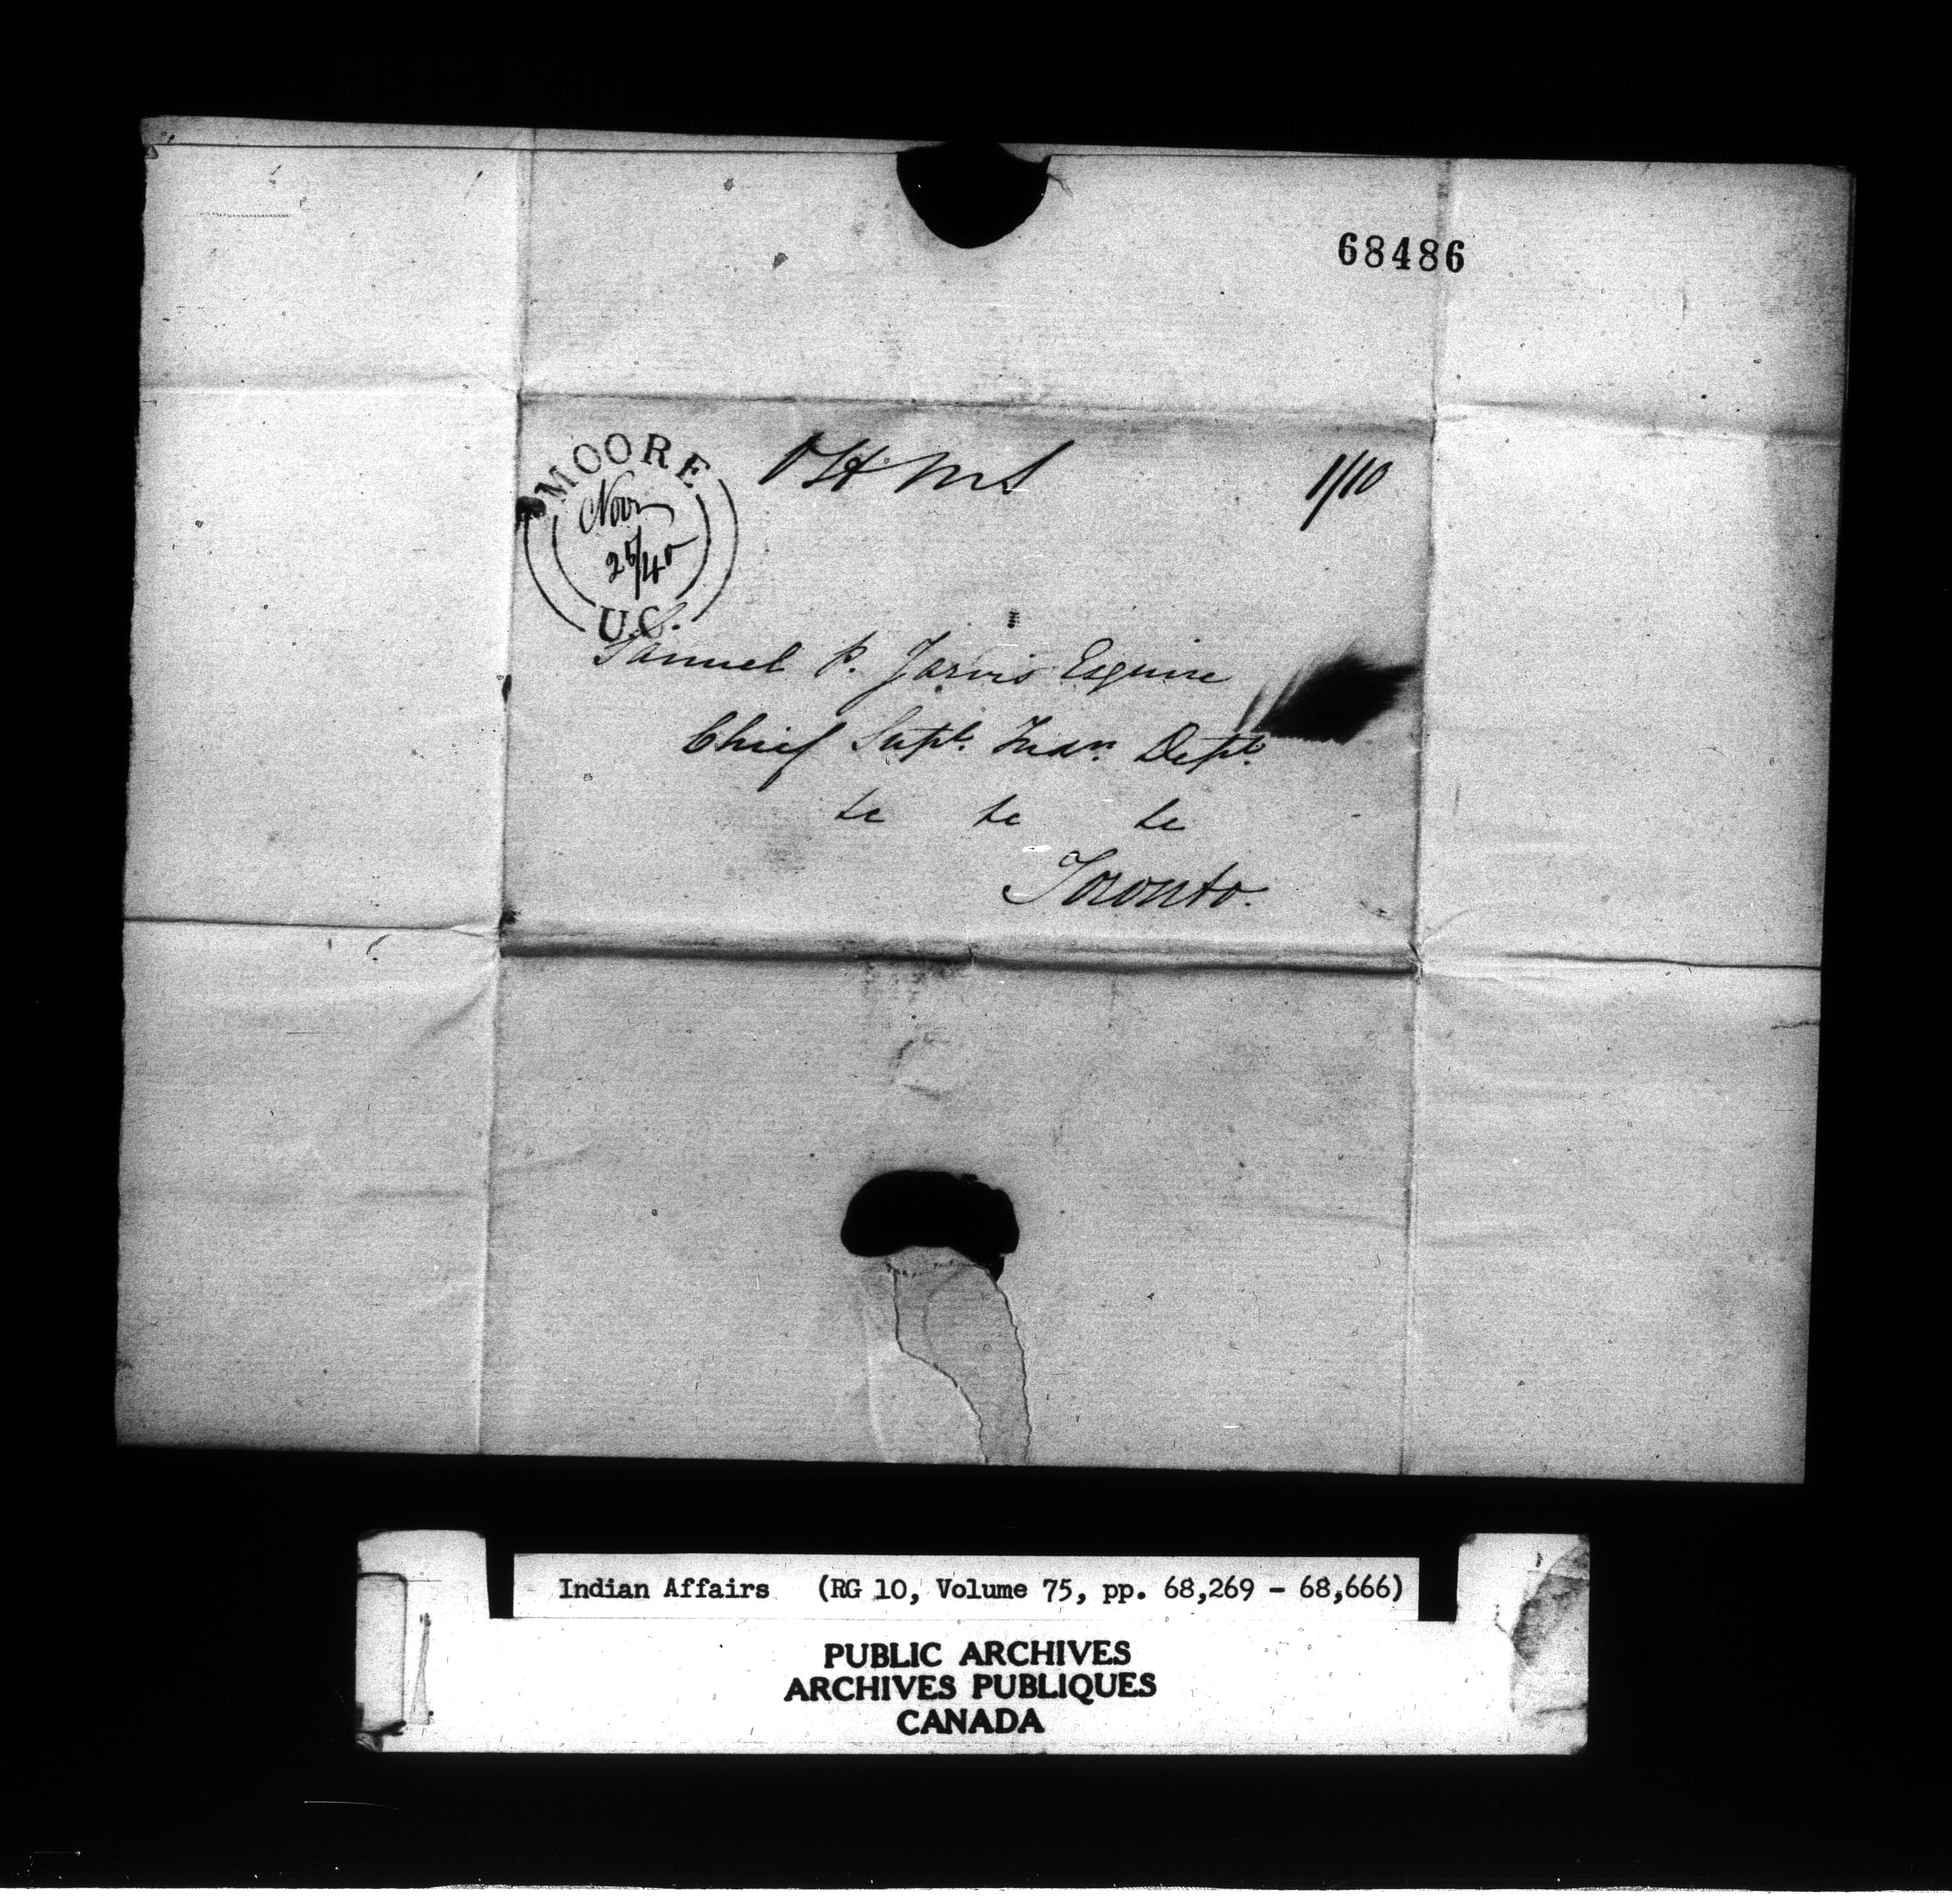 68486
MOORE
Novr
25/40
U.C.
OHMS
1/10
Samuel P. Jarvis Esquire
Chief Supt. Indn. Dept.
&c &c &c
Toronto.
Indian Affairs (RG 10, Volume 75, pp. 68,269 - 68,666)
PUBLIC ARCHIVES
ARCHIVES PUBLIQUES
CANADA